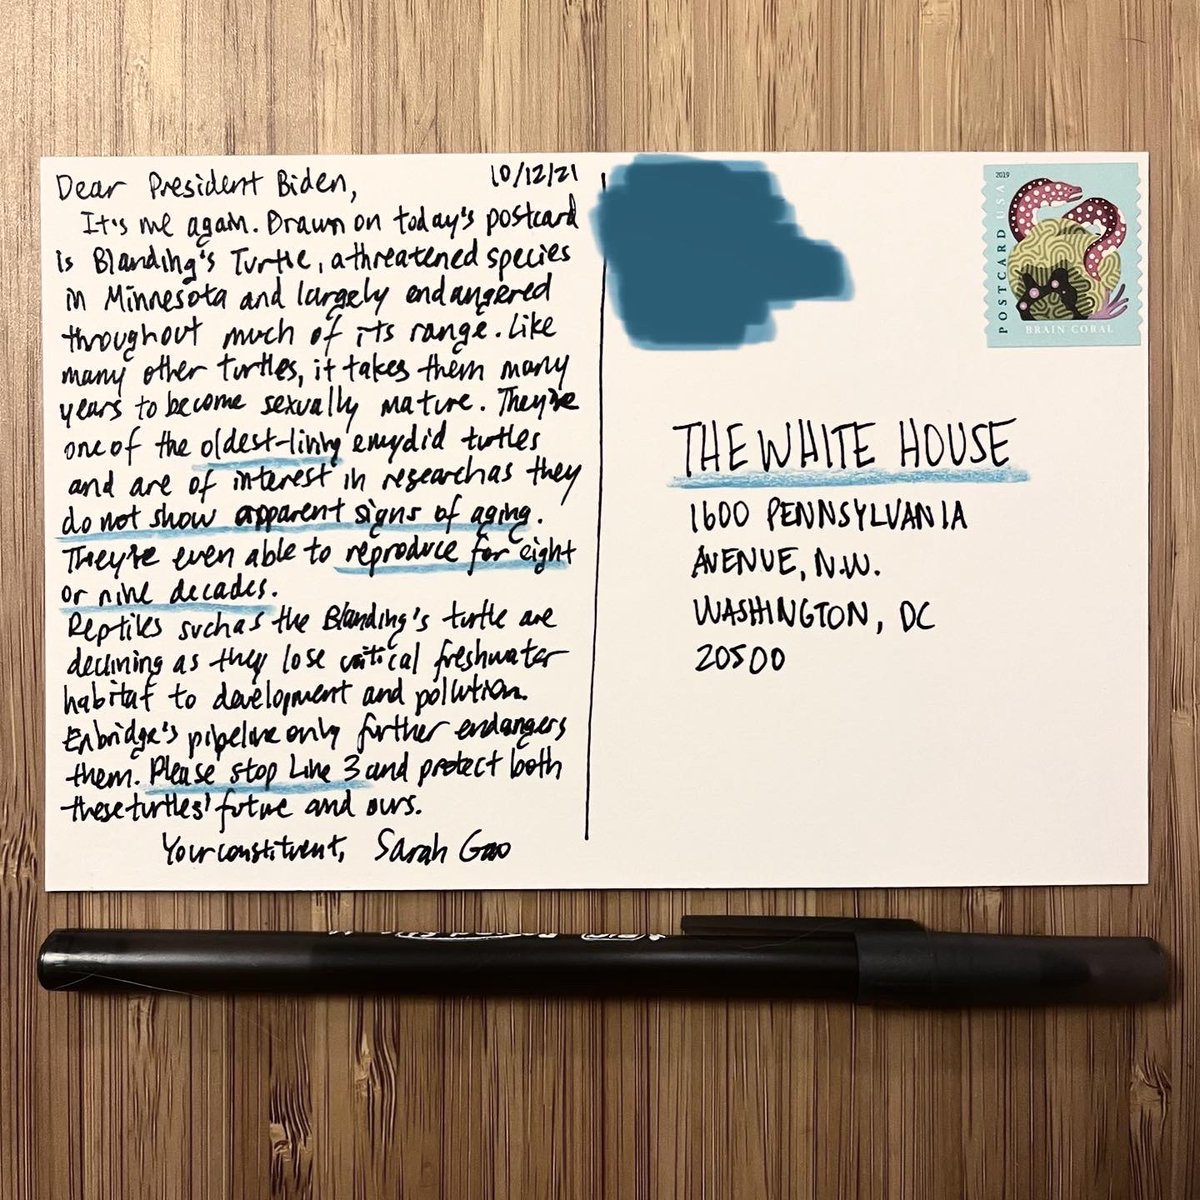 Dear President Biden,
10/12/21
It's me again. Drawn on today's postcard
is Blanding's Turtle, a threatened species
in Minnesota and largely endangered
throughout much of its range. Like
many other turtles, it takes them many
years to become sexually mature. They're
one of the oldest-living emydid turtles
and are of interest in research as they
do not show apparent signs of aging.
They're even able to reproduce for eight
or nine decades.
Reptiles such as the Blanding's turtle are
declining as they lose critical freshwater
habitat to development and pollution.
Enbridge's pipeline only further endangers
them. Please stop Line 3 and protect both
these turtles' future and ours.
Your constituent, Sarah Gao
2019
POSTCARD USA
BRAIN CORAL
THE WHITE HOUSE
1600 PENNSYLVANIA
AVENUE, N.W.
WASHINGTON, DC
20500